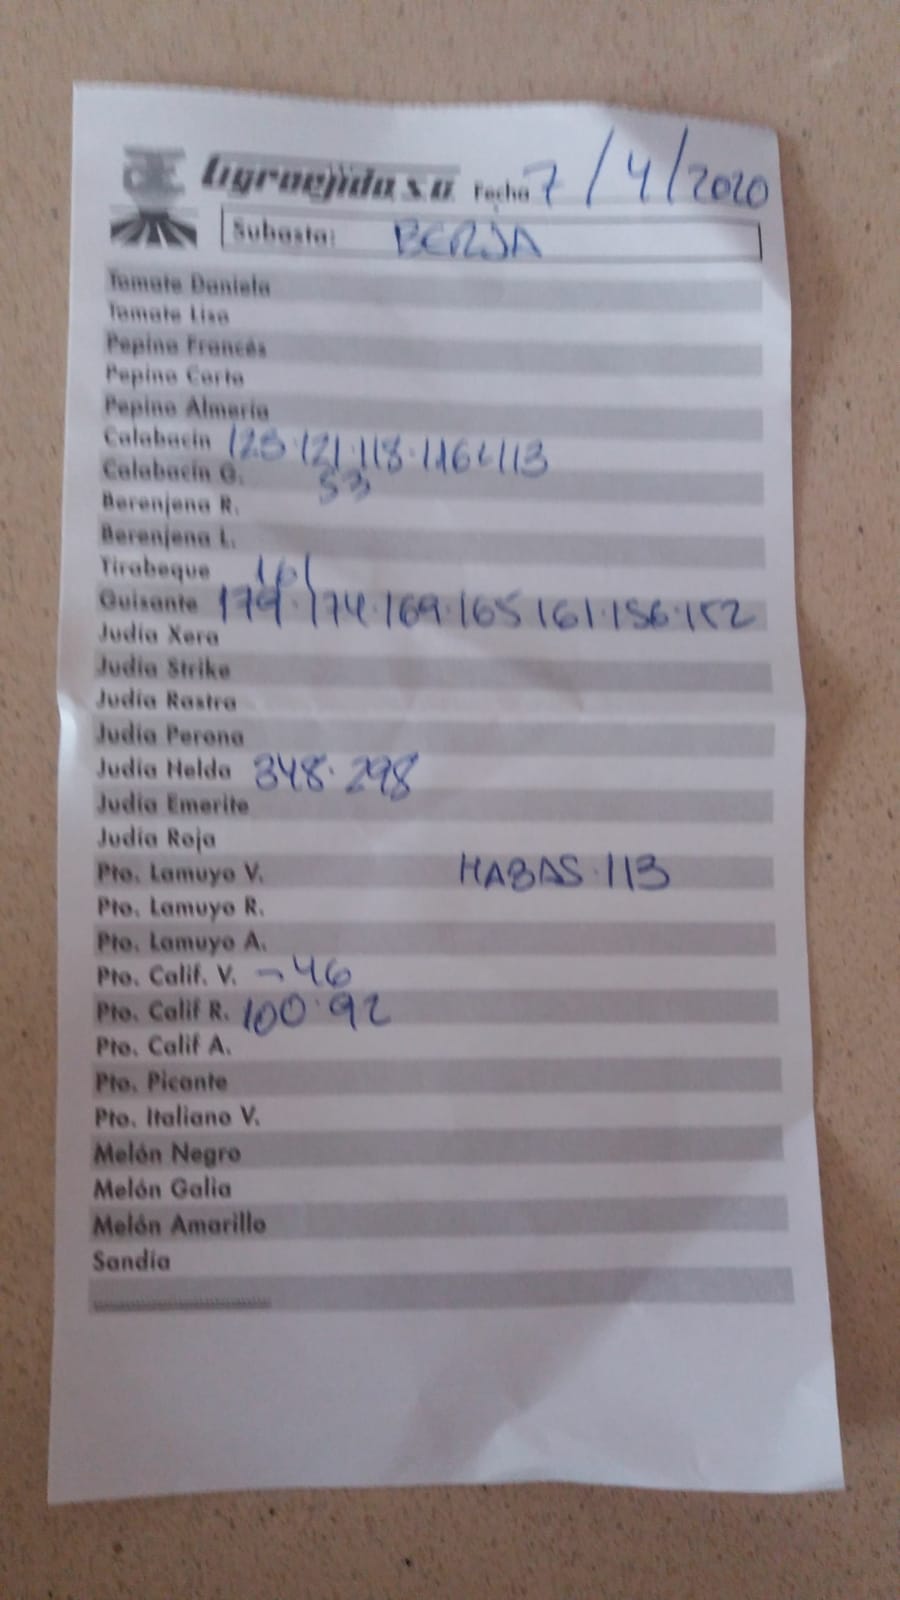 Agroejido S.A. Fecha 7/4/2020
Subasta: BERJA
Tomate Daniela
Tomate Liso
Pepino Francés
Pepino Corto
Pepino Almería
Calabacín 123·121·118·116·113
Calabacín G. 53
Berenjena R.
Berenjena L.
Tirabeque 161
Guisante 179·174·169·165 161·156·152
Judía Xera
Judía Strike
Judía Rastra
Judía Perona
Judía Helda 348·298
Judía Emerite
Judía Roja
Pto. Lamuyo V. HABAS·113
Pto. Lamuyo R.
Pto. Lamuyo A.
Pto. Calif. V. ¬46
Pto. Calif R. 100·92
Pto. Calif A.
Pto. Picante
Pto. Italiano V.
Melón Negro
Melón Galia
Melón Amarillo
Sandía